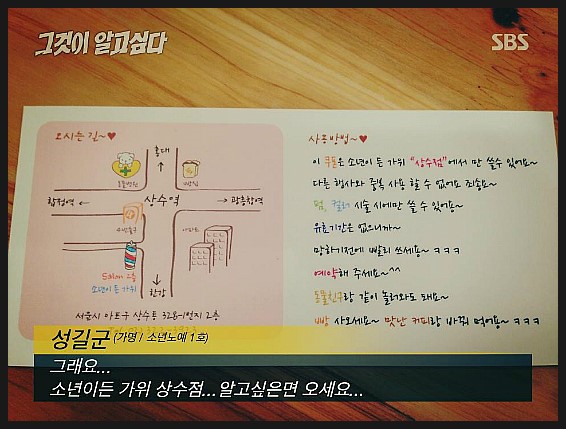 그것이 알고싶다
SBS
오시는 길~♥
홍대
동물병원
빵집
합정역 ←
상수역
→ 광흥창역
우리은행
아파트
Salon 2층
소년이 든 가위
한강
서울시 마포구 상수동 328-1번지 2층
사용방법~♥
이 쿠폰은 소년이 든 가위 "상수점"에서만 쓸수 있어요~
다른 행사와 중복 사용 할 수 없어요 죄송요~
펌, 컬러 시술 시에만 쓸 수 있어용~
유효기간은 없으니까~
망하기전에 빨리 쓰세용~ ㅋㅋㅋ
예약해 주세요~^^
동물친구랑 같이 놀러와도 돼요~
빵 사오세요~ 맛난 커피랑 바꿔 먹어용~ ㅋㅋㅋ
성길군 (가명 / 소년노예 1호)
그래요...
소년이든 가위 상수점...알고싶은면 오세요...